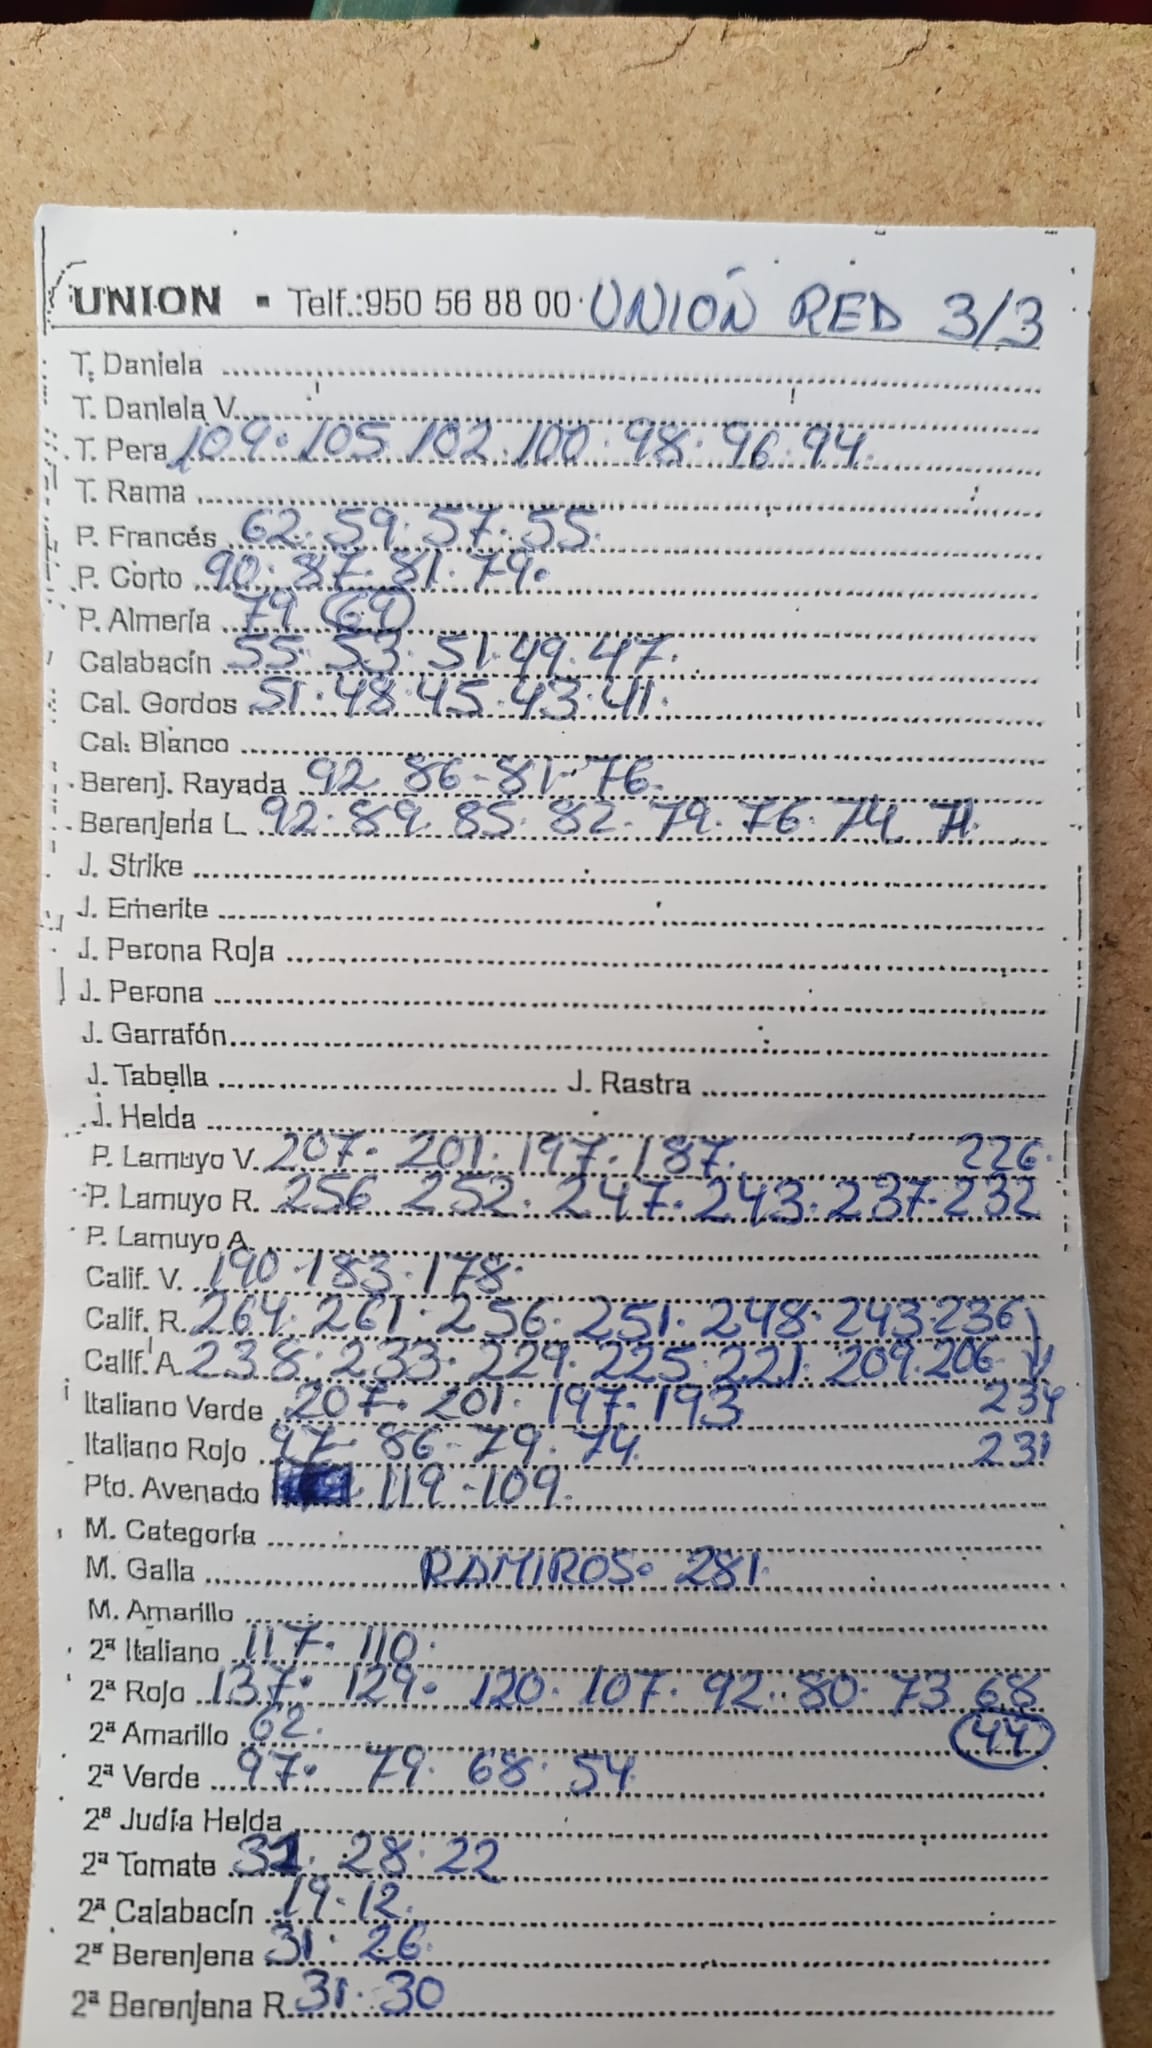 UNION ▪ Telf.:950 56 88 00 UNIÓN RED 3/3
T. Daniela
T. Daniela V.
T. Pera 109 · 105 102 · 100 · 98 · 96 · 94
T. Rama
P. Francés 62 · 59 · 57 · 55
P. Corto 90 · 87 · 81 · 79
P. Almería 79 (69)
Calabacín 55 · 53 · 51 · 49 · 47
Cal. Gordos 51 · 48 · 45 · 43 · 41
Cal. Blanco
Berenj. Rayada 92 86 - 81 - 76
Berenjena L. 92 · 89 85 · 82 · 79 · 76 · 74 71
J. Strike
J. Emerite
J. Perona Roja
J. Perona
J. Garrafón
J. Tabella J. Rastra
J. Helda
P. Lamuyo V. 207 · 201 · 197 · 187 226
P. Lamuyo R. 256 252 · 247 · 243 · 237 · 232
P. Lamuyo A.
Calif. V. 190 · 183 · 178
Calif. R. 264 · 261 · 256 · 251 · 248 · 243 · 236
Calif. A. 238 · 233 · 229 · 225 · 221 · 209 · 206
Italiano Verde 207 · 201 · 197 · 193 234
Italiano Rojo 97 · 86 - 79 · 74 231
Pto. Avenado 119 - 109
M. Categoría
M. Galla RAMIROS · 281
M. Amarillo
2ª Italiano 117 · 110
2ª Rojo 137 · 129 · 120 · 107 · 92 · 80 · 73 68
2ª Amarillo 62 (44)
2ª Verde 97 · 79 · 68 · 54
2ª Judía Helda
2ª Tomate 31 · 28 · 22
2ª Calabacín 19 · 12
2ª Berenjena 31 · 26
2ª Berenjena R. 31 · 30